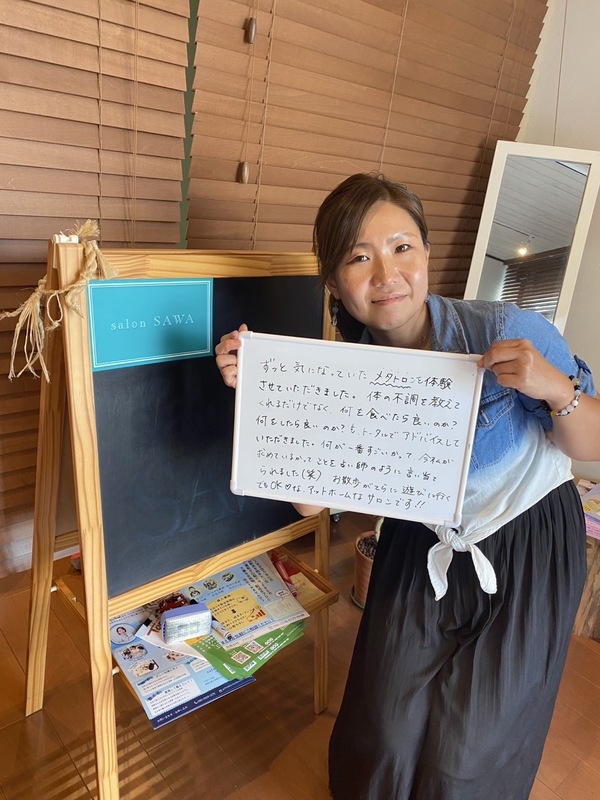 salon SAWA
ずっと気になっていたメタトロンを体験
させていただきました。体の不調を教えて
くれるだけでなく、何を食べたら良いのか？
何をしたら良いのか？も、トータルでアドバイスして
いただきました。何が一番すごいかって、今すんが
求めているかってことを占い師のように言い当て
られました(笑) お散歩がてらに遊びに行く
でもOK♡な、アットホームなサロンです!!